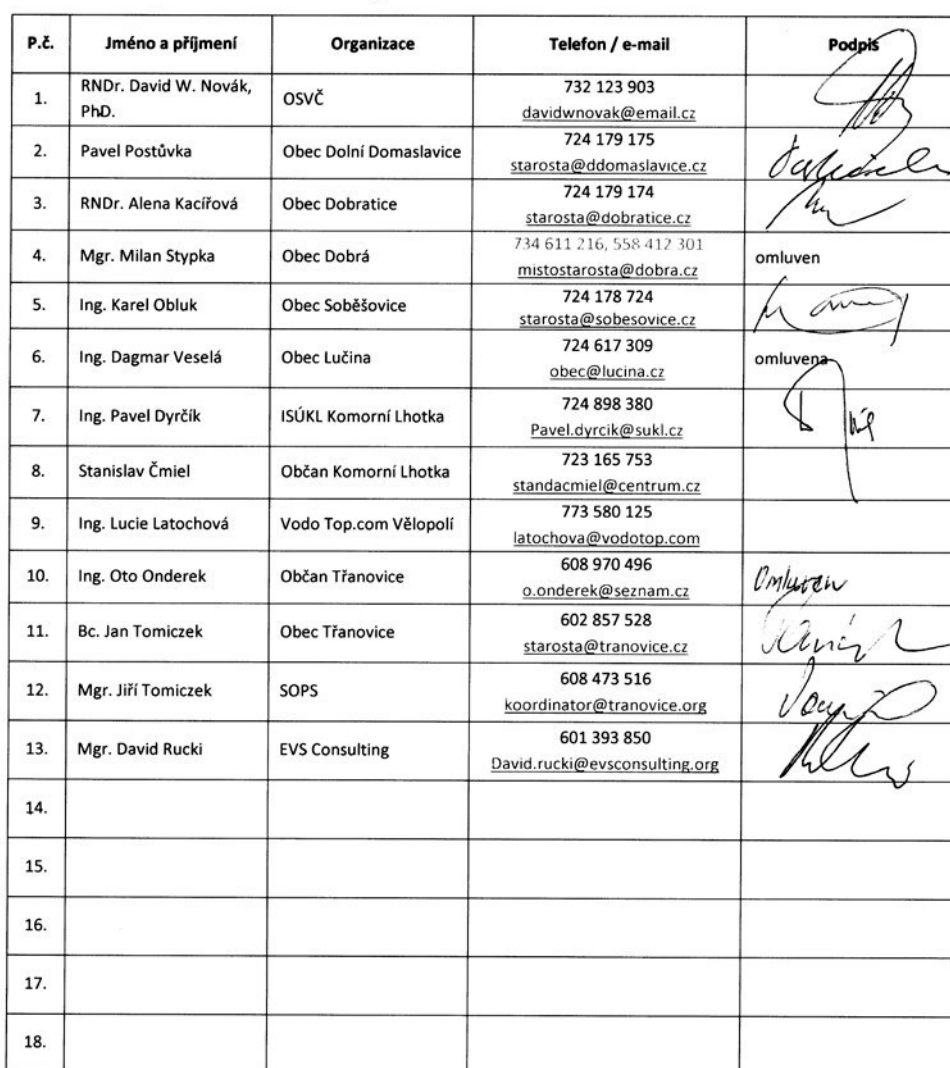 P.č. Jméno a příjmení Organizace Telefon / e-mail Podpis
1. RNDr. David W. Novák, PhD. OSVČ 732 123 903
davidwnovak@email.cz
2. Pavel Postůvka Obec Dolní Domaslavice 724 179 175
starosta@ddomaslavice.cz
3. RNDr. Alena Kacířová Obec Dobratice 724 179 174
starosta@dobratice.cz
4. Mgr. Milan Stypka Obec Dobrá 734 611 216, 558 412 301 omluven
mistostarosta@dobra.cz
5. Ing. Karel Obluk Obec Soběšovice 724 178 724
starosta@sobesovice.cz
6. Ing. Dagmar Veselá Obec Lučina 724 617 309 omluvena
obec@lucina.cz
7. Ing. Pavel Dyrčík ISÚKL Komorní Lhotka 724 898 380
Pavel.dyrcik@sukl.cz
8. Stanislav Čmiel Občan Komorní Lhotka 723 165 753
standacmiel@centrum.cz
9. Ing. Lucie Latochová Vodo Top.com Vělopolí 773 580 125
latochova@vodotop.com
10. Ing. Oto Onderek Občan Třanovice 608 970 496 Omluven
o.onderek@seznam.cz
11. Bc. Jan Tomiczek Obec Třanovice 602 857 528
starosta@tranovice.cz
12. Mgr. Jiří Tomiczek SOPS 608 473 516
koordinator@tranovice.org
13. Mgr. David Rucki EVS Consulting 601 393 850
David.rucki@evsconsulting.org
14.
15.
16.
17.
18.